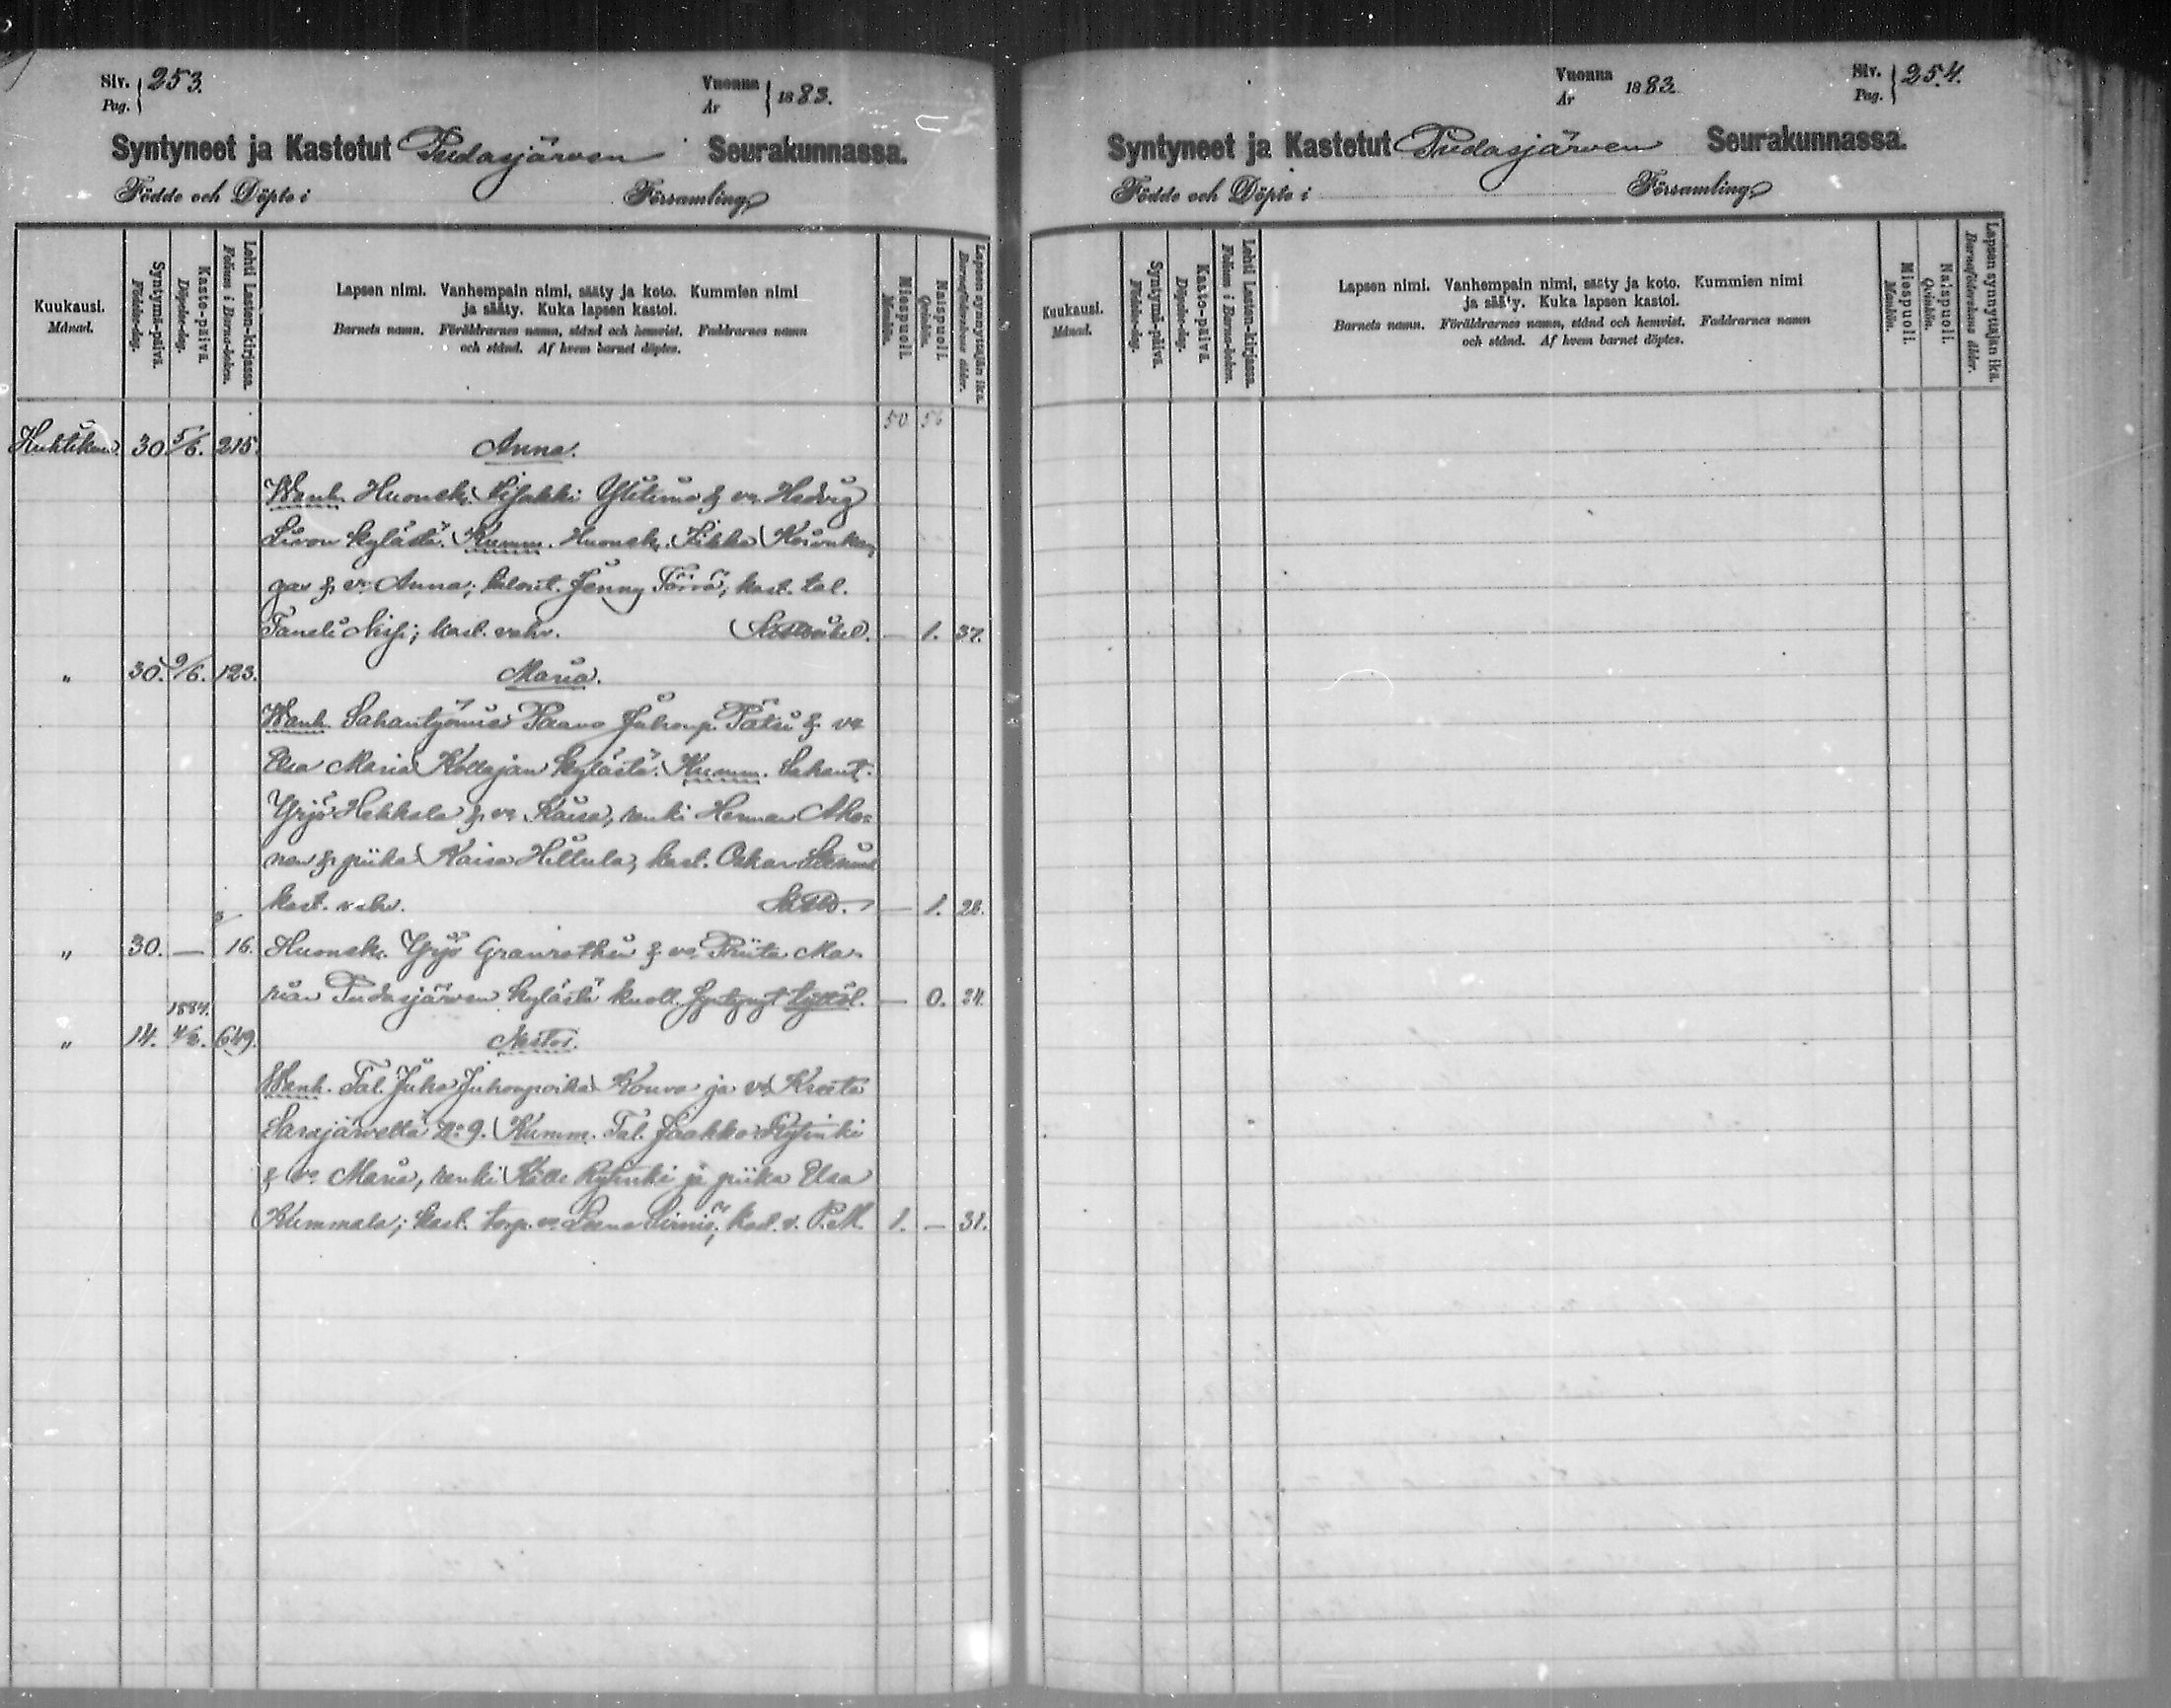 Siv. Pag. 253.
Vuonna År 1883.
Syntyneet ja Kastetut Pudasjärven Seurakunnassa.
Födde och Döpte i Församling
Kuukausi. Månad.
Syntymä-päivä. Födelse-dag.
Kaste-päivä. Döpelse-dag.
Lehti Lasten-kirjassa. Folium i Barna-boken.
Lapsen nimi. Vanhempain nimi, sääty ja koto. Kummien nimi
ja sääty. Kuka lapsen kastoi.
Barnets namn. Föräldrarnes namn, stånd och hemvist. Faddrarnes namn
och stånd. Af hvem barnet döptes.
Miespuoli. Mankön.
Naispuoli. Qvinkön.
Lapsen synnyttäjän ikä. Barnaföderskans ålder.
50 56
Huhtikuu 30 5/6. 215. Anna.
Wanh. Huonek. Ylitimo & vo Hedvig
Sivon kylästä. Kumm. Huonek. Koivukan
gas & vo Anna; Jenny Törrö; kast. tal.
Taneli Nisj; kast. vahv. — 1. 37.
" 30. 9/6. 123. Maria.
Wanh. Sahantyömies Paavo Juhonp. Pätsi & vo
Elsa Maria Kollajan kylästä. Kumm. Sahant.
Yrjö Hekkala & vo Kaisa, renki Herman Aho-
nen & piika Kaisa Hiltula; kast. Oskar
kast. vahv. — 1. 28.
" 30. — 16. Huonek. Yrjö Granrothin & vo Priita Ma-
rian Pudasjärven kylästä kuoll. syntynyt tyttöl. — 0. 24.
1884.
" 14. 4/6. 649. Nestor.
Wanh. Tal. Juho Juhonpoika Kouva ja vo Kreeta
Sarajärveltä No 9. Kumm. Tal. Jaakko Rytinki
& vo Maria, renki Kalle Rytinki ja piika Elsa
Kummala; kast. torp. vo Leena Sirniö; kast. v. P.M. 1. — 31.
Vuonna År 1883
Siv. Pag. 254.
Syntyneet ja Kastetut Pudasjärven Seurakunnassa.
Födde och Döpte i Församling
Kuukausi. Månad.
Syntymä-päivä. Födelse-dag.
Kaste-päivä. Döpelse-dag.
Lehti Lasten-kirjassa. Folium i Barna-boken.
Lapsen nimi. Vanhempain nimi, sääty ja koto. Kummien nimi
ja sääty. Kuka lapsen kastoi.
Barnets namn. Föräldrarnes namn, stånd och hemvist. Faddrarnes namn
och stånd. Af hvem barnet döptes.
Miespuoli. Mankön.
Naispuoli. Qvinkön.
Lapsen synnyttäjän ikä. Barnaföderskans ålder.